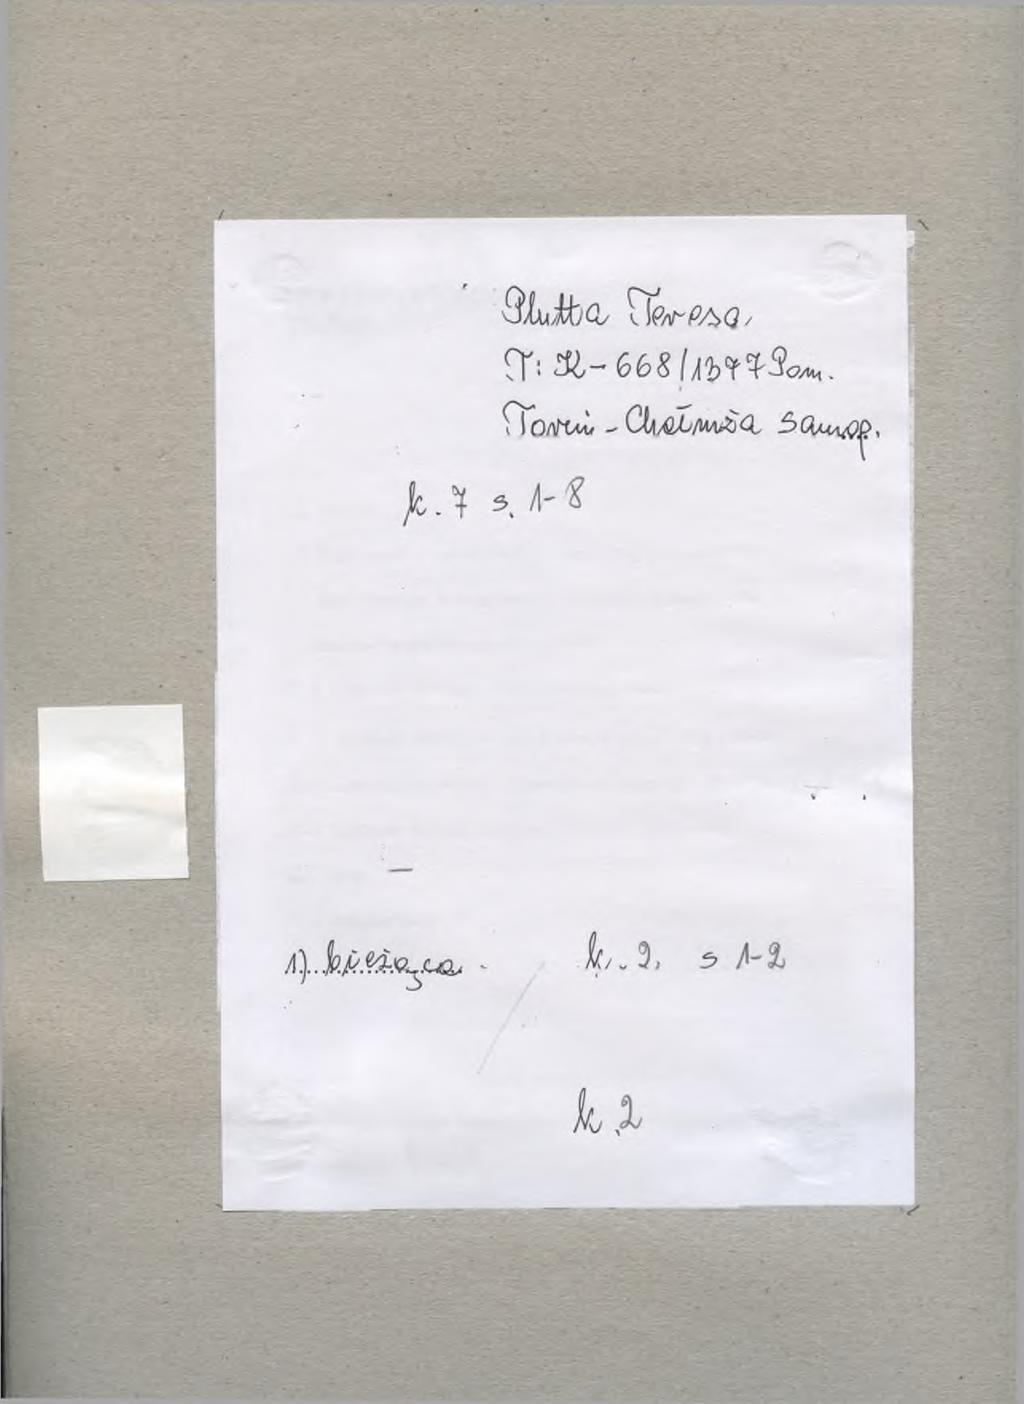 Plutta Teresa,
T: K-668/1397 Pom.
Toruń-Chełmża samop.
k. 7 s. 1-8
1) bieżąca. k. 2. s 1-2
k. 2